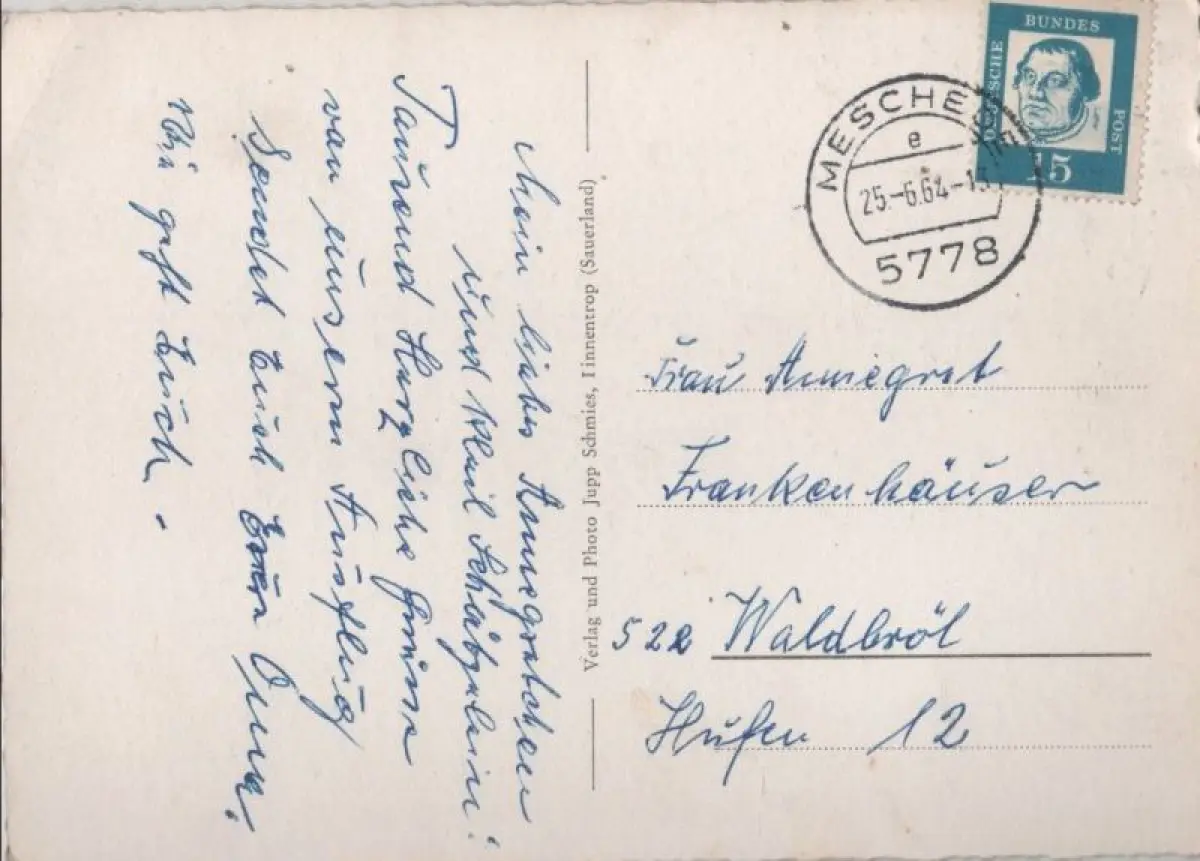 Mein liebes Annegretchen
und kleil Schätzelein!
Tausend Herzliche Grüsse
von unserm Ausflug
sendet Euch Eure Oma.
Wie geht Euch.
Verlag und Photo Jupp Schmies, Finnentrop (Sauerland)
DEUTSCHE BUNDES POST
15
MESCHEDE
e
25.-6.64-13
5778
Frau Annegret
Frankenhäuser
522 Waldbröl
Hufen 12